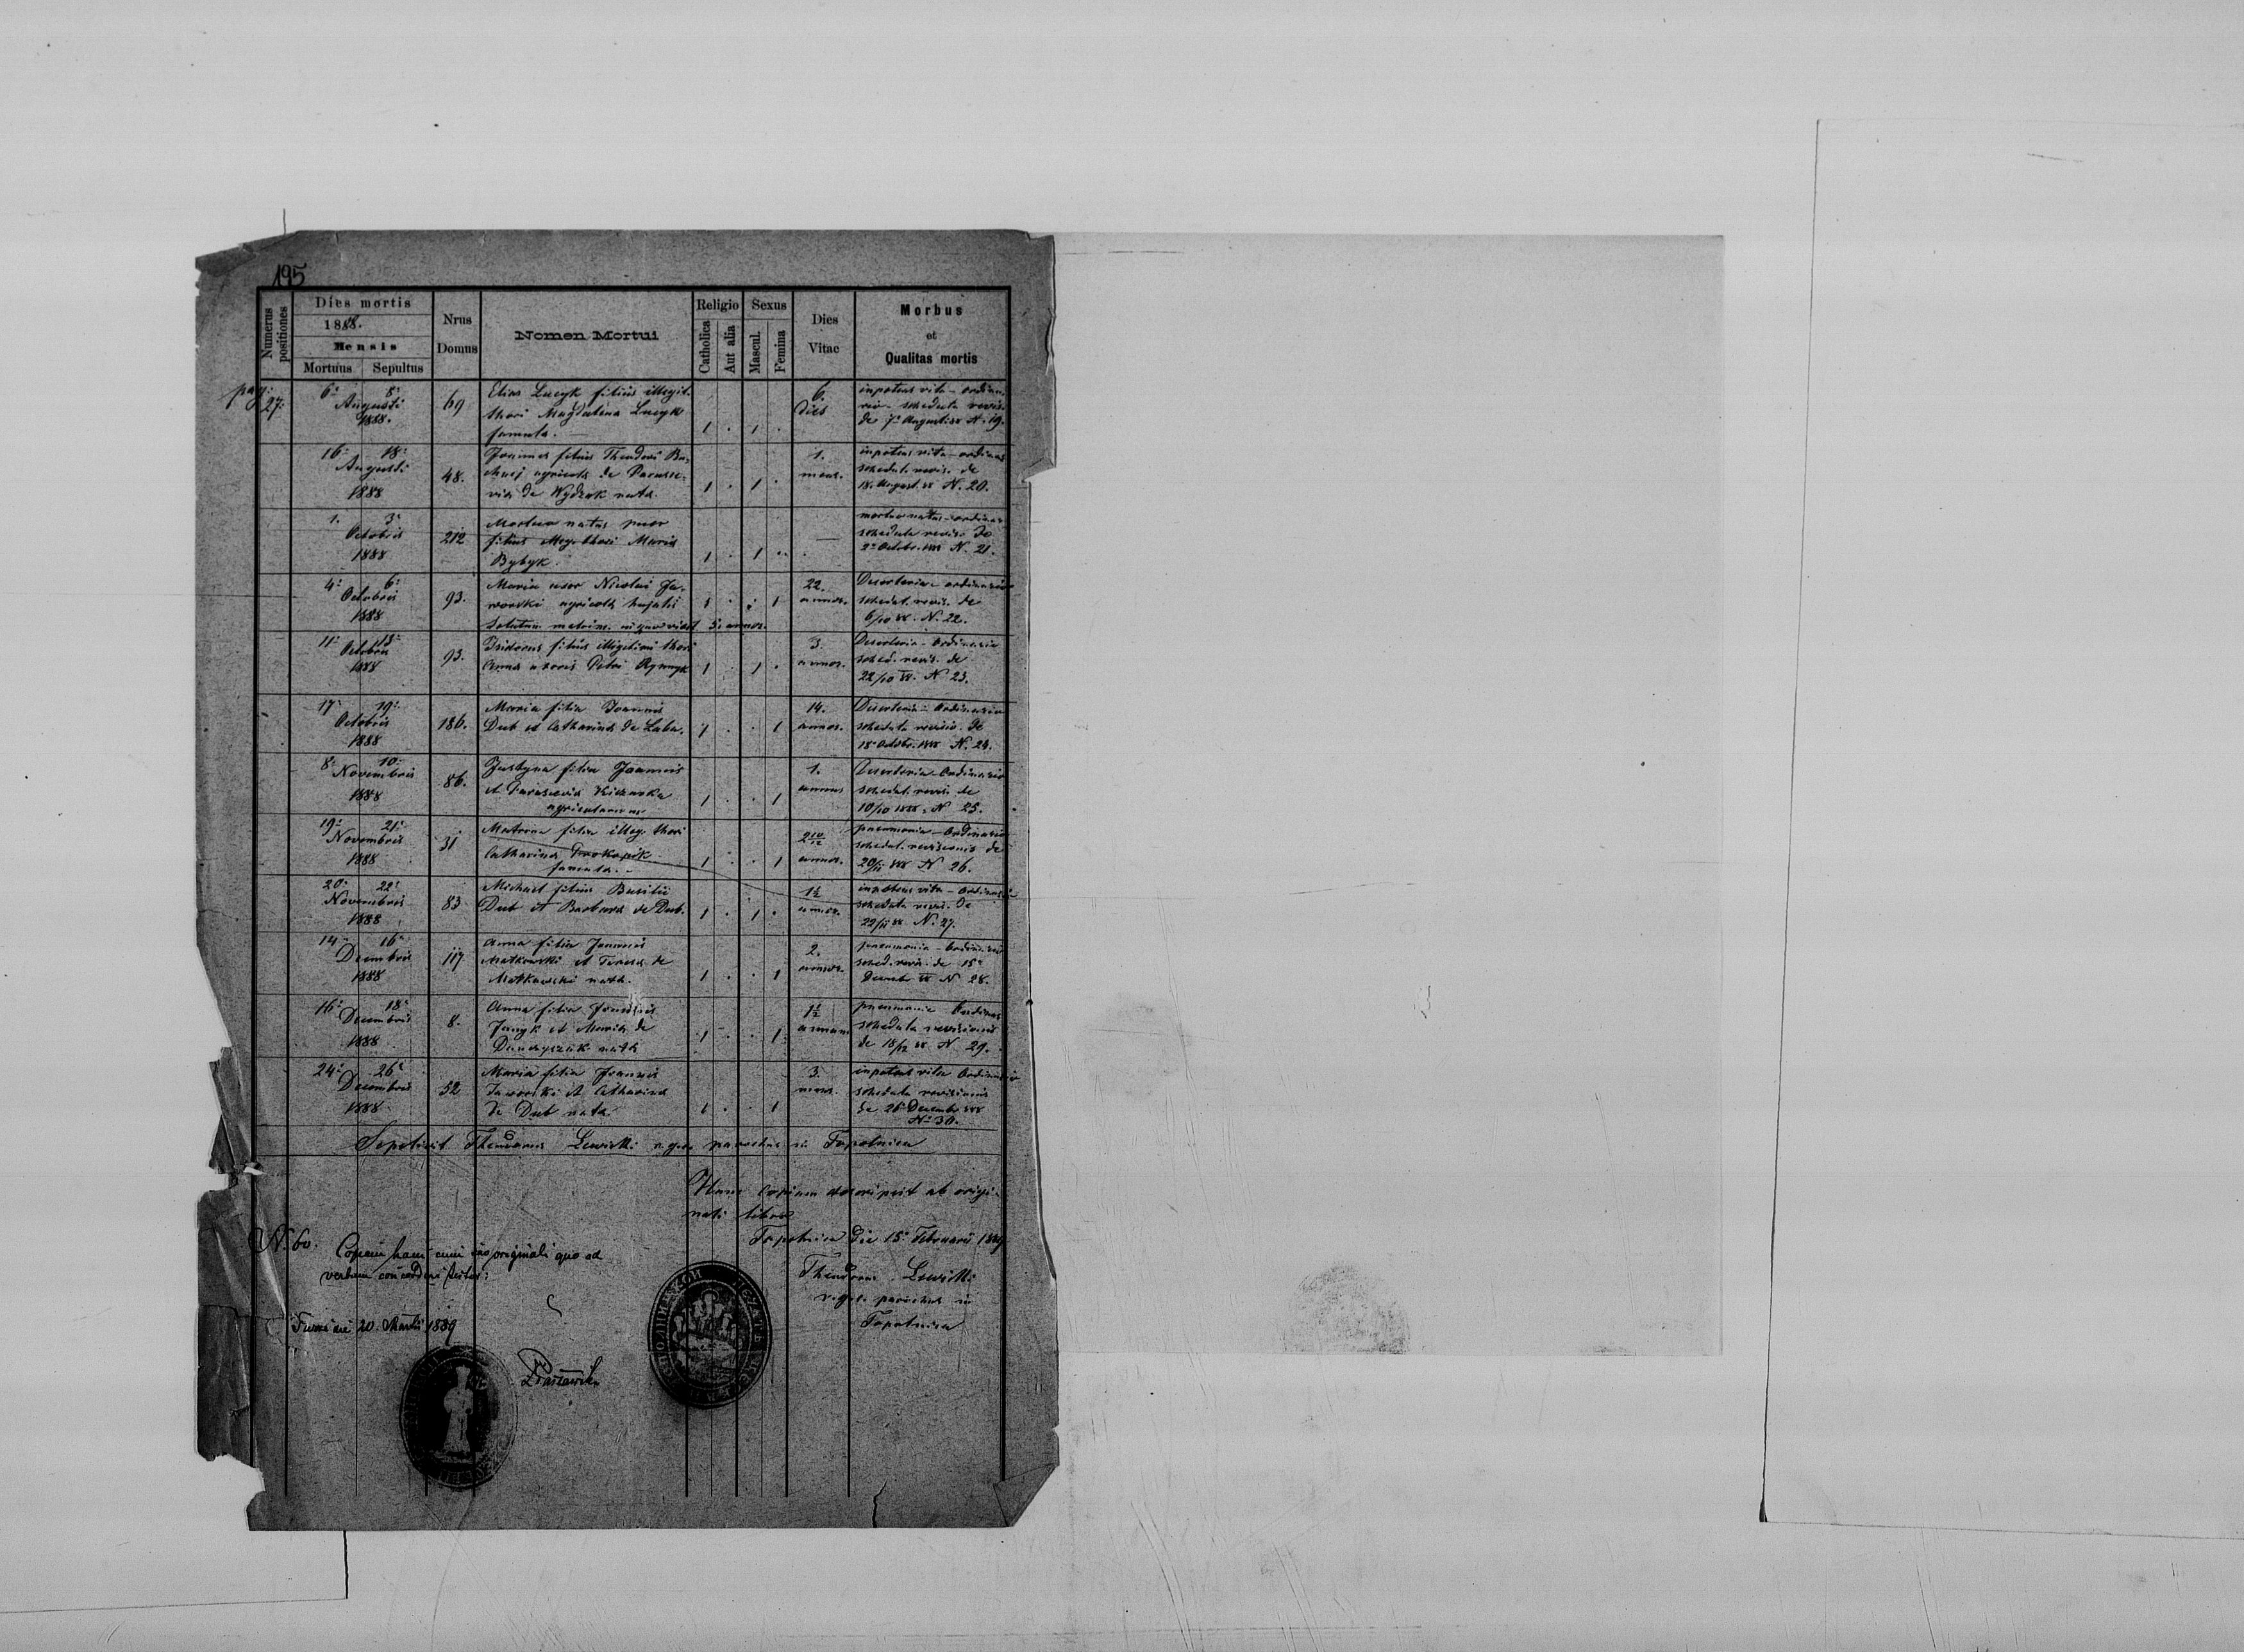 195
Numerus positiones
Dies mortis
1888.
Mensis
Mortuus Sepultus
Nrus Domus
Nomen Mortui
Religio
Catholica
Aut alia
Sexus
Mascul.
Femina
Dies Vitae
Morbus
et
Qualitas mortis
pag: 27.
6a 8a
Augusti
1888.
69
Elias Lucyk filius illegit.
thori Magdalena Lucyk
famula.
1 . 1 .
6.
dies
impotens vita - ordina
ria - schedula revis.
de 7a Augusti 88 N. 19.
16a 18a
Augusti
1888
48.
Joannes filius Theodori
agricola de
via de Wydrak nata.
1 . 1 .
1.
mens.
impotens vita - ordinar
schedul. revis. de
18. August. 88 N. 20.
1. 3a
Octobris
1888
212
Mortuo natus puer
filius illeg. thori Maria
Bybyk
1 . 1 . .
mortuo natus - ordinar
schedula revis. de
2a Octobr. 1888 N. 21.
4a 6a
Octobris
1888
93.
Maria uxor Nicolai Ja-
worski agricola hujatis
5. annos.
1 . . 1
22.
annos.
Desenteria - ordinaria
schedul. revis. de
6/10 88. N. 22.
11a 13a
Octobris
1888
93.
Isidorus filius illegitimi thori
Anna uxoris Petri Rymyk
1 . 1 .
3.
annos.
Desenteria - Ordinaria
sched. revis. de
22/10 88. N 23.
17a 19a
Octobris
1888
186.
Maria filia Joannis
Dub et Catharina de Laba.
1 . . 1
14.
annos.
Desenteria - Ordinaria
schedula revisio. de
18a Octobr. 1888 N. 24.
8a 10a
Novembris
1888
86.
Justyna filia Joannis
et Parascevia
agricolarum
1 . . 1
1.
annus
Desenteria - Ordinaria
schedul. revis. de
10/10 1888. N 25.
19a 21a
Novembris
1888
31
Matrona filia illeg. thori
Catharina Prokopik
famula.
1 . . 1
2 10/12
annos.
pneumonia - Ordinaria
schedul. revisionis de
20/11 888 N 26.
20a 22a
Novembris
1888
83
Michael filius Basilii
Dub et Barbara de Dub.
1 . 1 .
1½
annos.
impotens vita - Ordinaria
schedula revis. de
22/11 88 N. 27.
14a 16a
Decembris
1888
117
Anna filia Joannis
Matkowski et Teresa de
Matkowski nata.
1 . . 1
2.
annos.
pneumonia - Ordinaria
sched. revis. de 15a
Decembr 88 N 28.
16a 18a
Decembris
1888
8.
Anna filia Joannis
et Maria de
nata
1 . . 1
1½
annum
pneumonia Ordinar
schedula revisionis
de 18/12 88. N 29.
24a 26a
Decembris
1888
52
Maria filia Joannis
Jaworski et Catharina
de Dub nata
1 . . 1
3.
mens.
impotens vita Ordinaria
schedula revisionis
de 26a Decembr 888
No 30.
Sepelivit Theodorus Lewicki r. gr. c. parochus in Topolnica
Hanc Copiam descripsit ab origi-
nali libro
Topolnica die 15a Februarii 1889
Theodorus Lewicki
r. gr. c. parochus in
Topolnica
N. 60.
Copiam hanc cum suo originali quo ad
verbum concordare testor:
die 20. Martii 1889